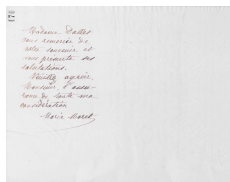 Madame Dallet
vous remercie de
votre souvenir et
vous présente ses
salutations.
Veuillez agréer,
Monsieur, l'assu-
rance de toute ma
considération
Marie Moret